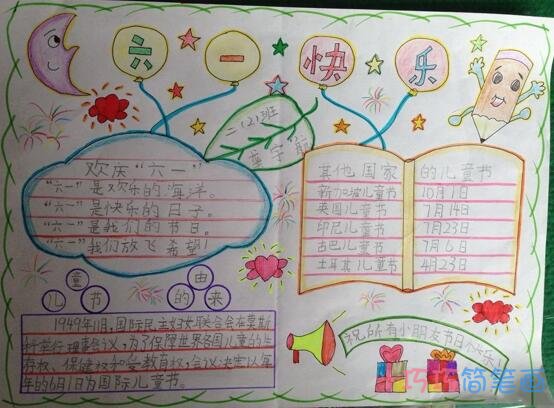 六一快乐
二(2)班
龚宇航
欢庆“六一”
“六一”是欢乐的海洋。
“六一”是快乐的日子。
“六一”是我们的节日。
“六一”我们放飞希望！
其他国家的儿童节
新加坡儿童节 10月1日
英国儿童节 7月14日
印尼儿童节 7月23日
古巴儿童节 7月6日
土耳其儿童节 4月23日
儿童节的由来
1949年11月,国际民主妇女联合会在莫斯
科举行理事会议,为了保障世界各国儿童的生
存权、保健权和受教育权,会议决定以每
年的6月1日为国际儿童节。
祝所有小朋友节日快乐!
巧巧简笔画